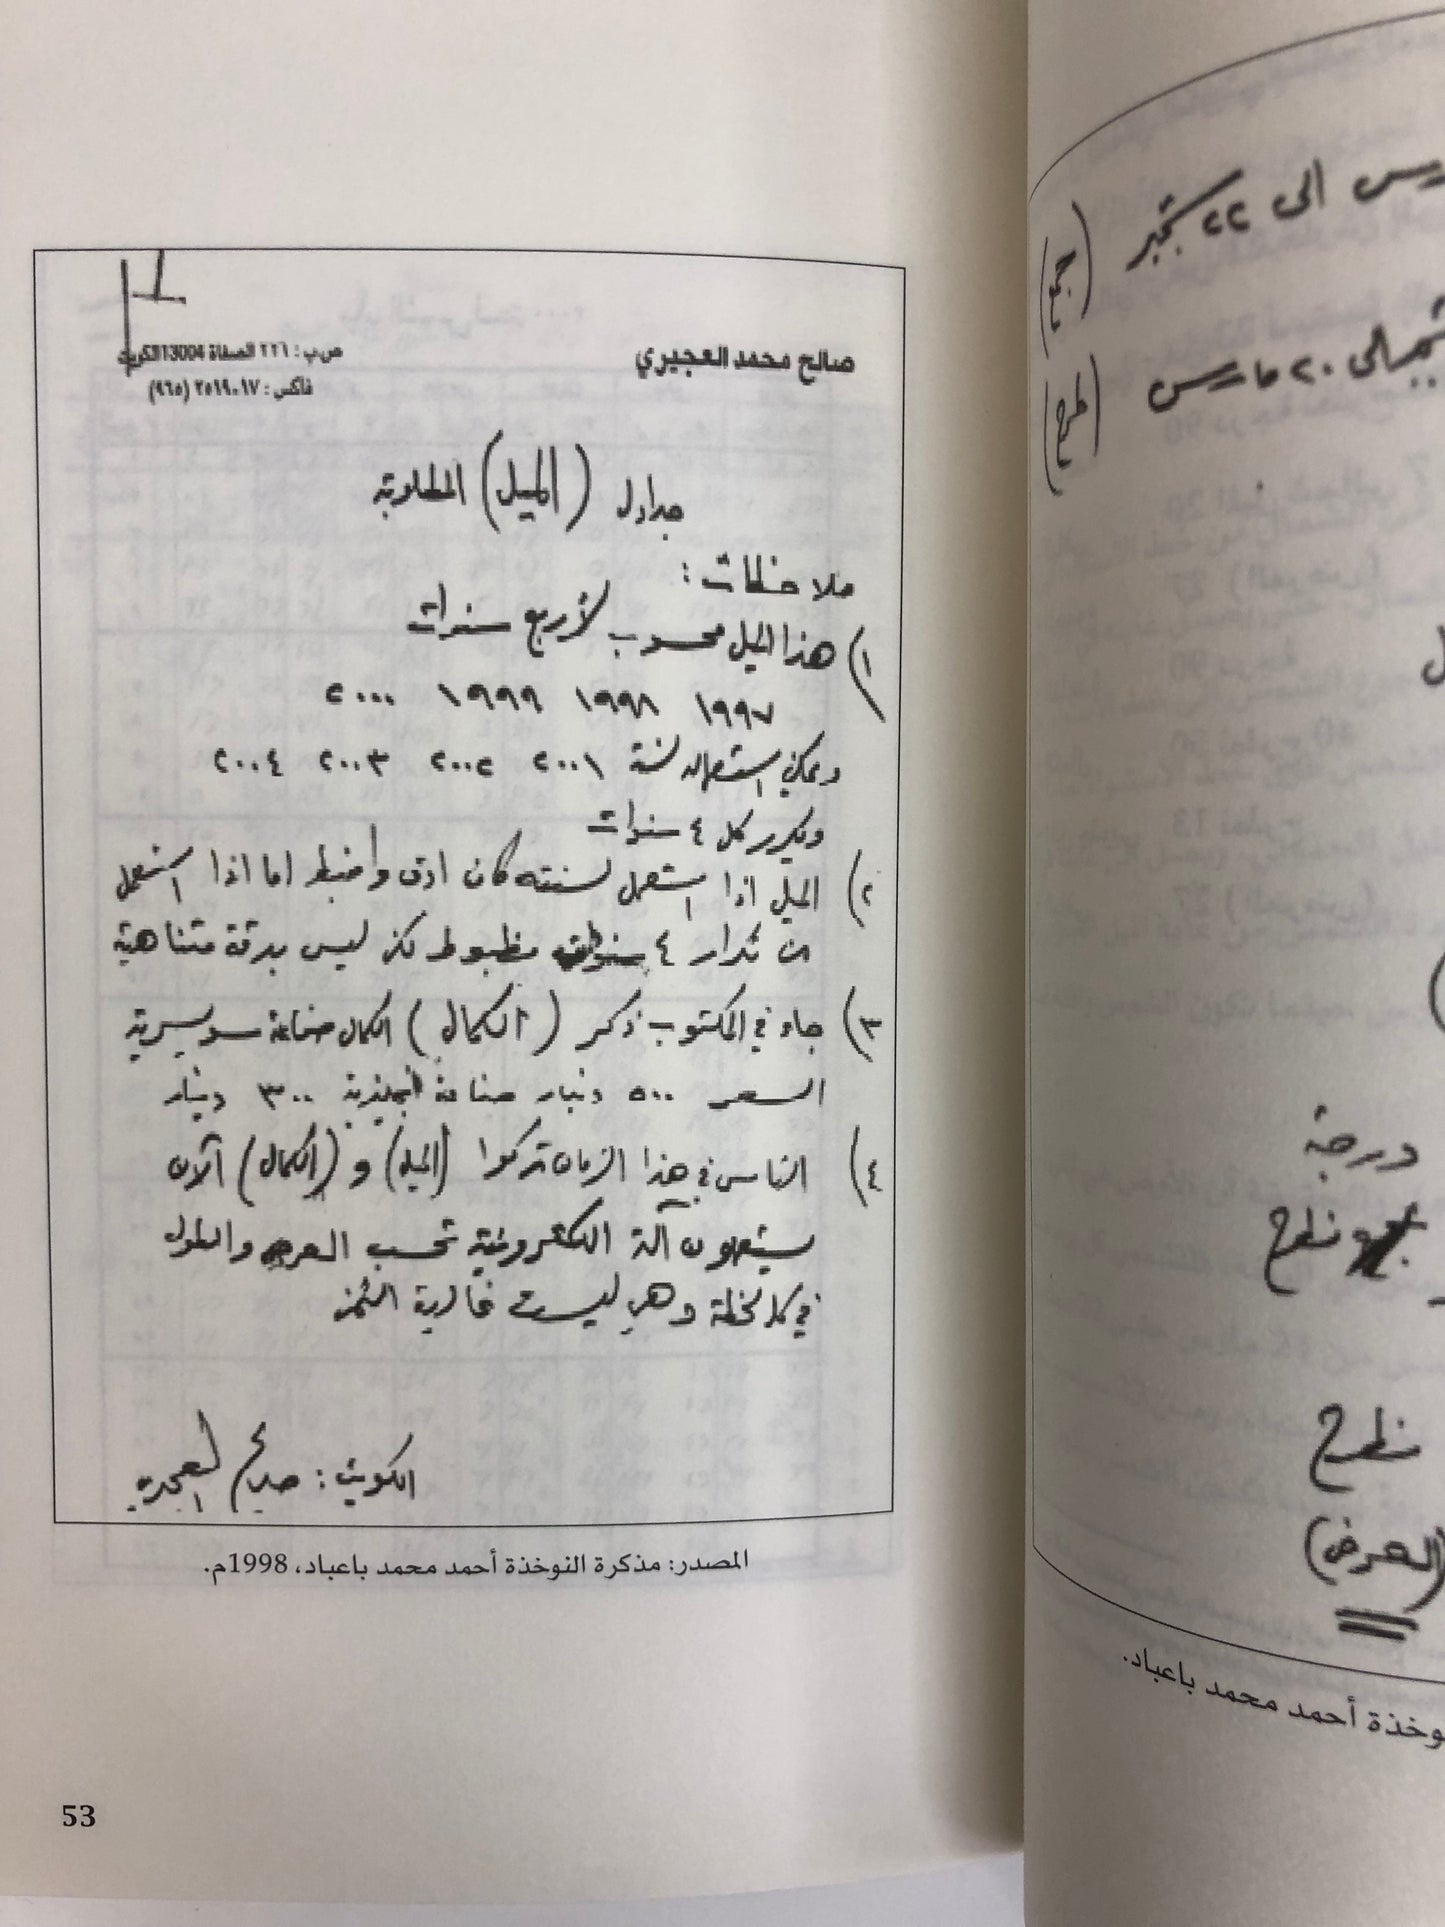 صالح محمد العجيري
ص.ب : ٢٢٦ الصفاة 13004 الكويت
فاكس : ٢٥١٩٠١٧ (٩٦٥)
جداول (الميل) المطلوبة
ملاحظات :
١) هذا الميل محسوب لأربع سنوات
١٩٩٧ ١٩٩٨ ١٩٩٩ ٢٠٠٠
ويمكن استعماله لسنة ٢٠٠١ ٢٠٠٢ ٢٠٠٣ ٢٠٠٤
ويكرر كل ٤ سنوات
٢) الميل اذا استعمل لسنته كان ادق واضبط اما اذا استعمل
من تكرار ٤ سنوات مظبوط لكن ليس بدقة متناهية
٣) جاء في المكتوب ذكر (الكمال) الكمال صناعة سويسرية
السعر ٥٠٠ دينار صناعة انجليزية ٣٠٠ دينار
٤) الناس في هذا الزمان تركوا (الميل) و (الكمال) الآن
يستعملون آلة الكترونية تحسب العرض والطول
في كل لحظة وهي ليست غالية الثمن
الكويت : صالح العجيري
المصدر: مذكرة النوخذة أحمد محمد باعباد، 1998م.
53
الى ٢٢ سبتمبر
٢٠ مارس
درجة
نطرح
نطرح
(العرض)
أحمد محمد باعباد.